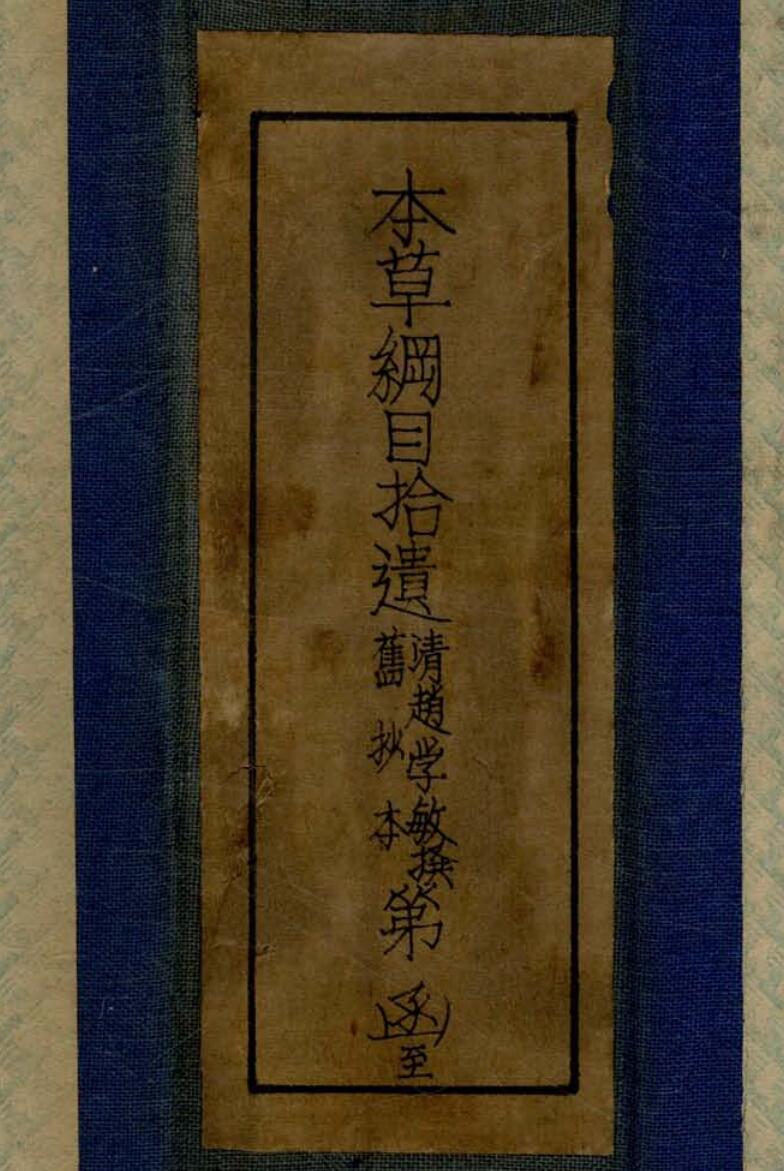 本草綱目拾遺
清趙学敏撰
舊抄本
第 函
至